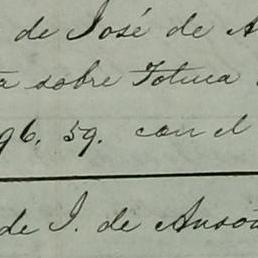 de José de A
a sobre Toluca
96. 59. con el
de I. de Anso